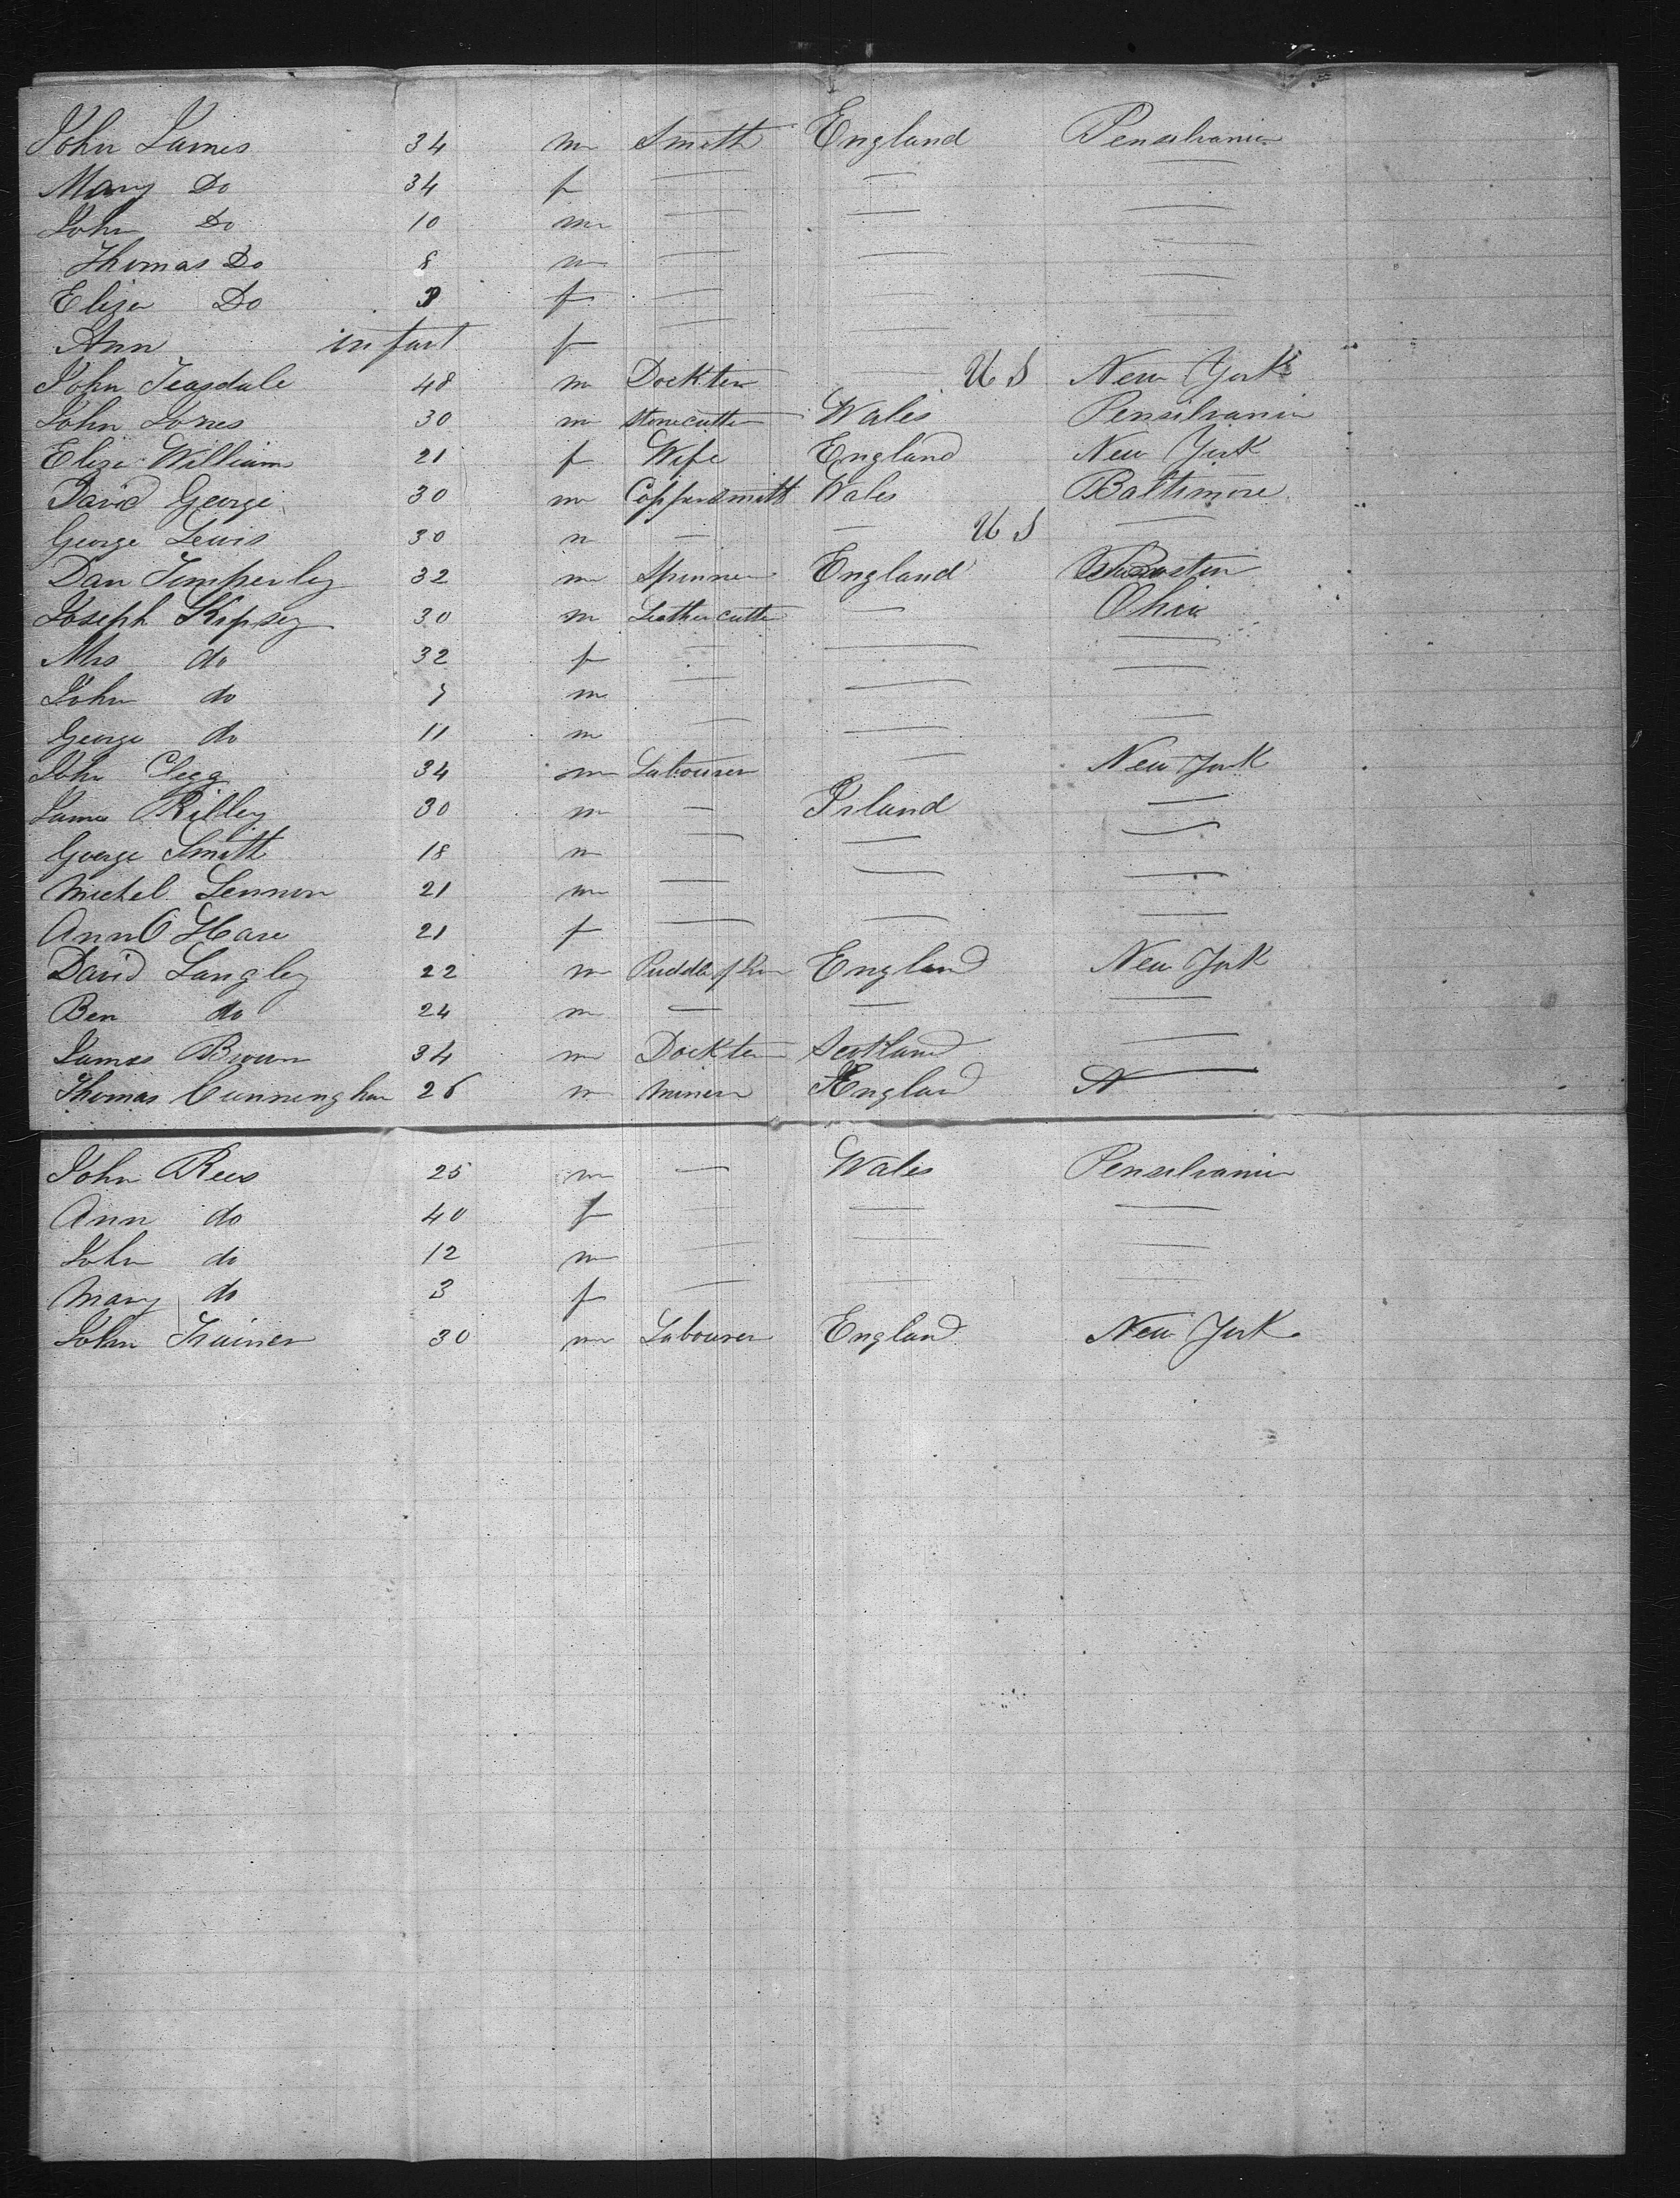 John James 34 m Smith England Pensilvania
Mary Do 34 f — —
John Do 10 m — — —
Thomas Do 8 m — — —
Eliza Do f — — —
Ann infant f — — —
John Teasdale 48 m Dockter — U S New York
John Jones 30 m Stonecutter Wales Pensilvania
Eliza Williams 21 f Wife England New York
David George 30 m Coppersmith Wales Baltimore
George Lewis 30 m — — U S —
Dan Timperley 32 m Spinner England Boston
Joseph Kipsey 30 m Leather cutter — Ohio
Mrs do 32 f — — —
John do 7 m — — —
George do 11 m — — —
John Clegg 34 m Labourer — New York
James Rilley 30 m — Irland —
George Smith 18 m — — —
Michel Lennon 21 m — — —
Ann O Hare 21 f — — —
David Langley 22 m England New York
Ben do 24 m — — —
James Brown 34 m Dockter Scotland —
Thomas Cunningham 26 m Miner England N —
John Rees 25 m — Wales Pensilvania
Ann do 40 f — — —
John do 12 m — — —
Mary do 3 f — — —
John Trainer 30 m Labourer England New York